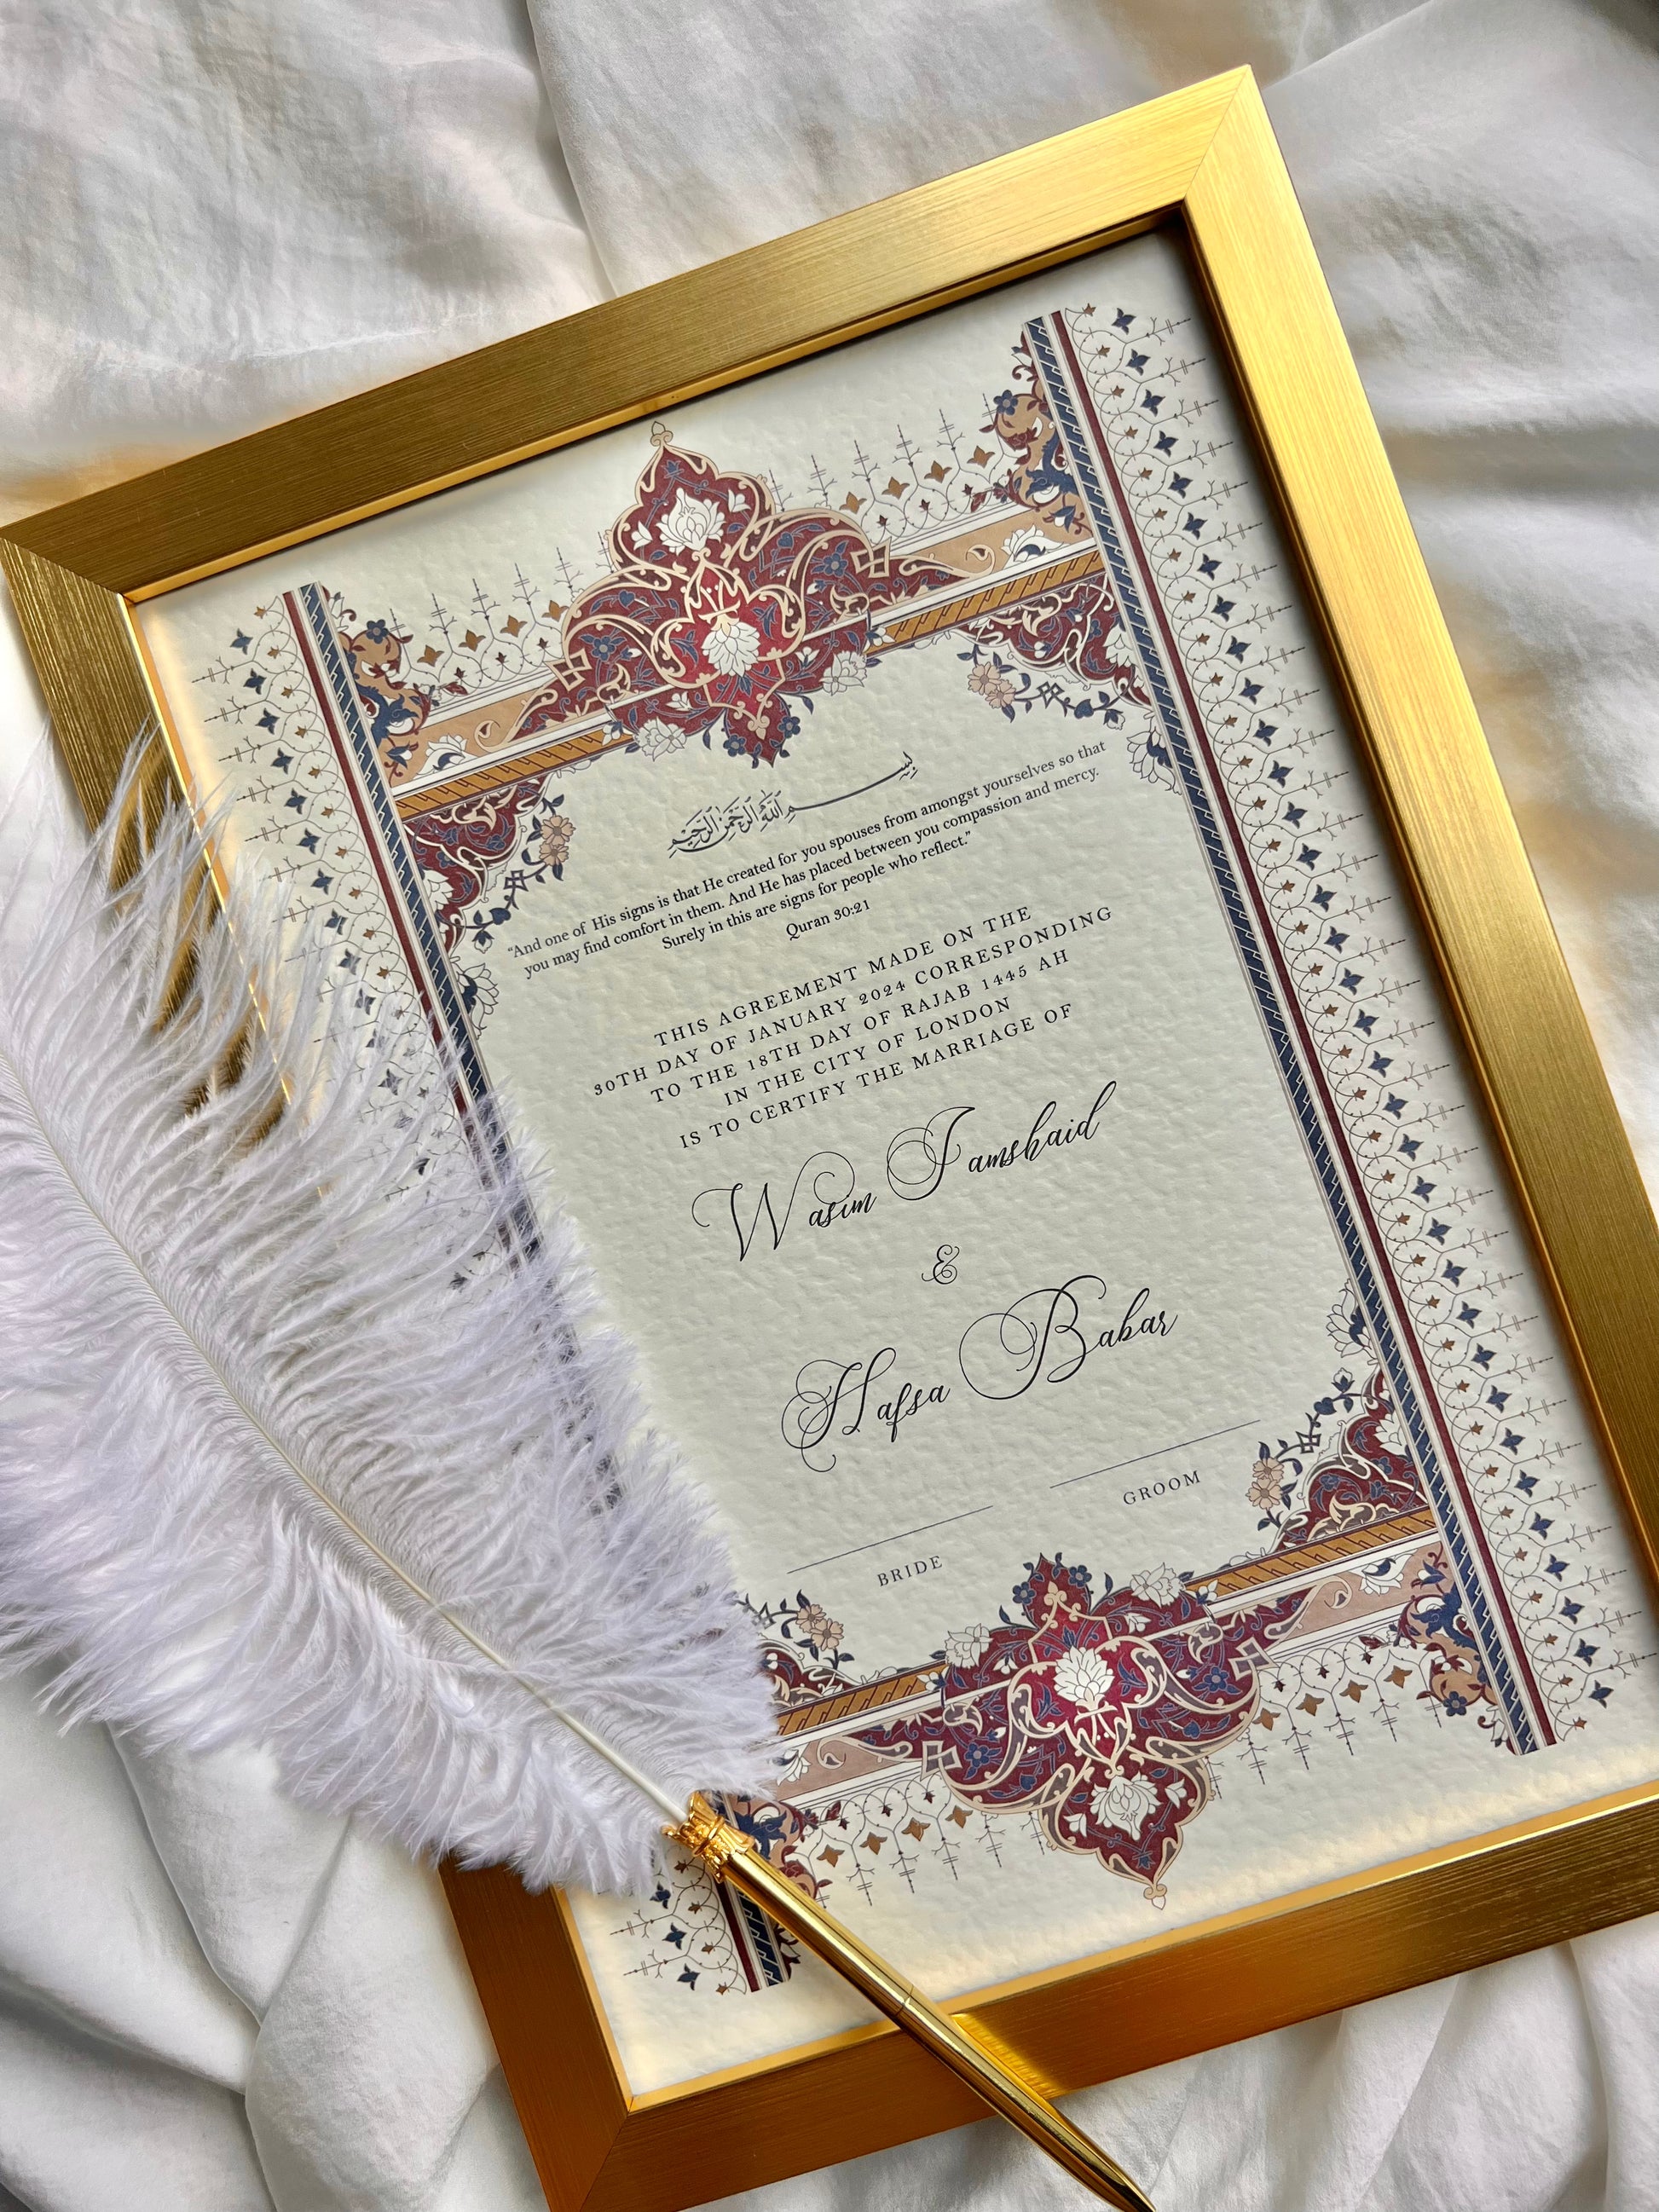 بسم الله الرحمن الرحيم
“And one of His signs is that He created for you spouses from amongst yourselves so that
you may find comfort in them. And He has placed between you compassion and mercy.
Surely in this are signs for people who reflect.”
Quran 30:21
THIS AGREEMENT MADE ON THE
30TH DAY OF JANUARY 2024 CORRESPONDING
TO THE 18TH DAY OF RAJAB 1445 AH
IN THE CITY OF LONDON
IS TO CERTIFY THE MARRIAGE OF
Wasim Jamshaid
&
Hafsa Babar
BRIDE GROOM